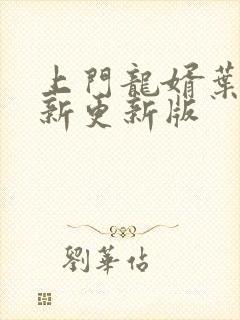 上門龍婿葉
新更新版
劉華佔